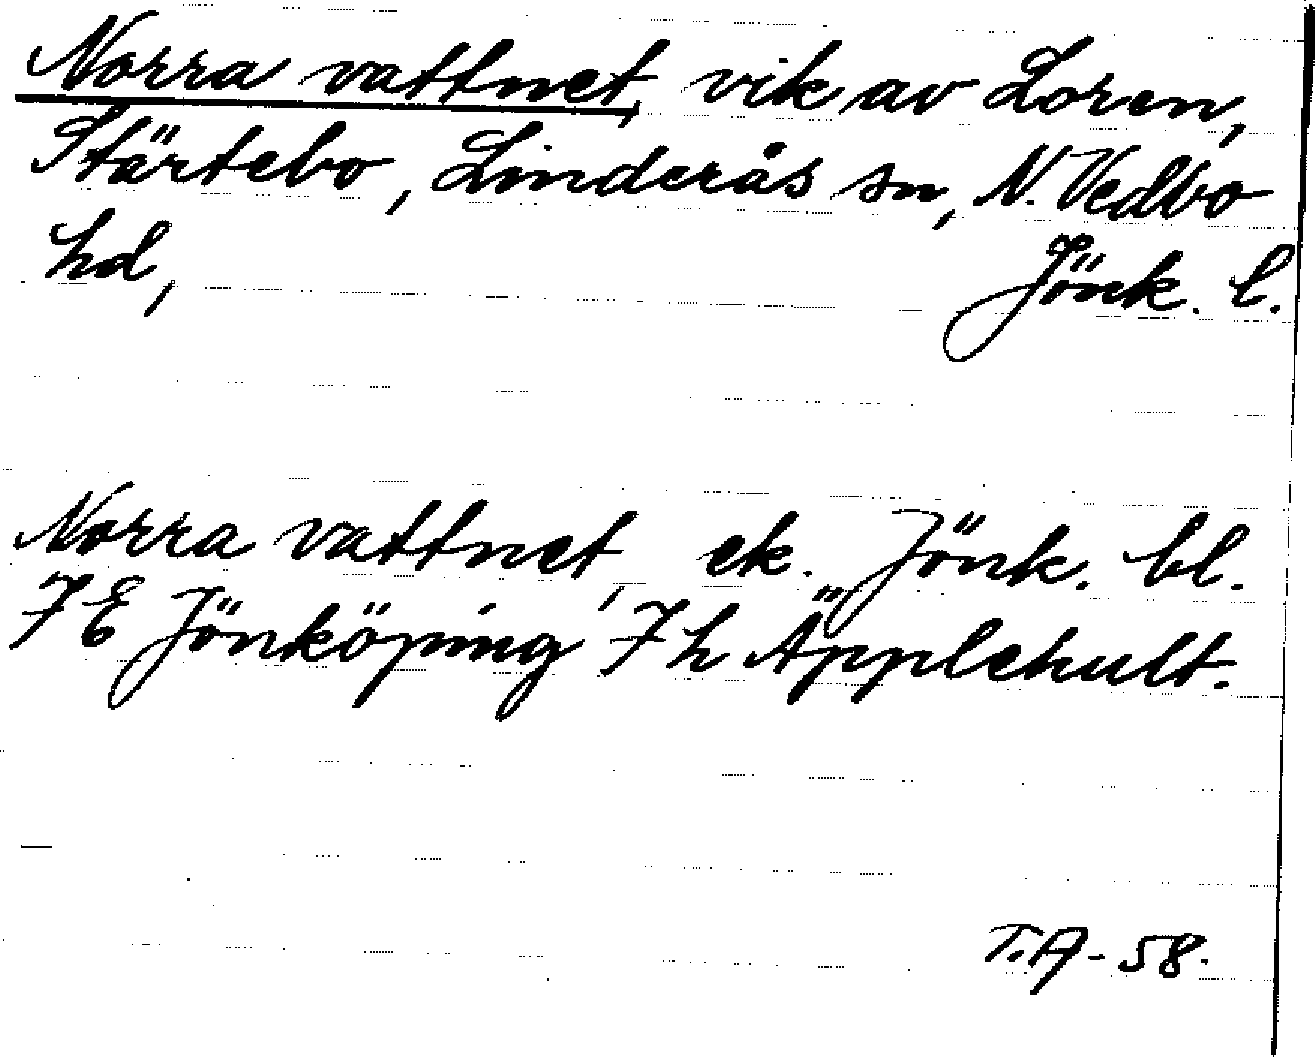 Norra vattnet, vik av Loren,
Stärtebo, Linderås sn, N. Vedbo
hd, Jönk. l.
Norra vattnet, ek. Jönk. bl.
7E Jönköping 7h Äpplehult.
T.A-58.